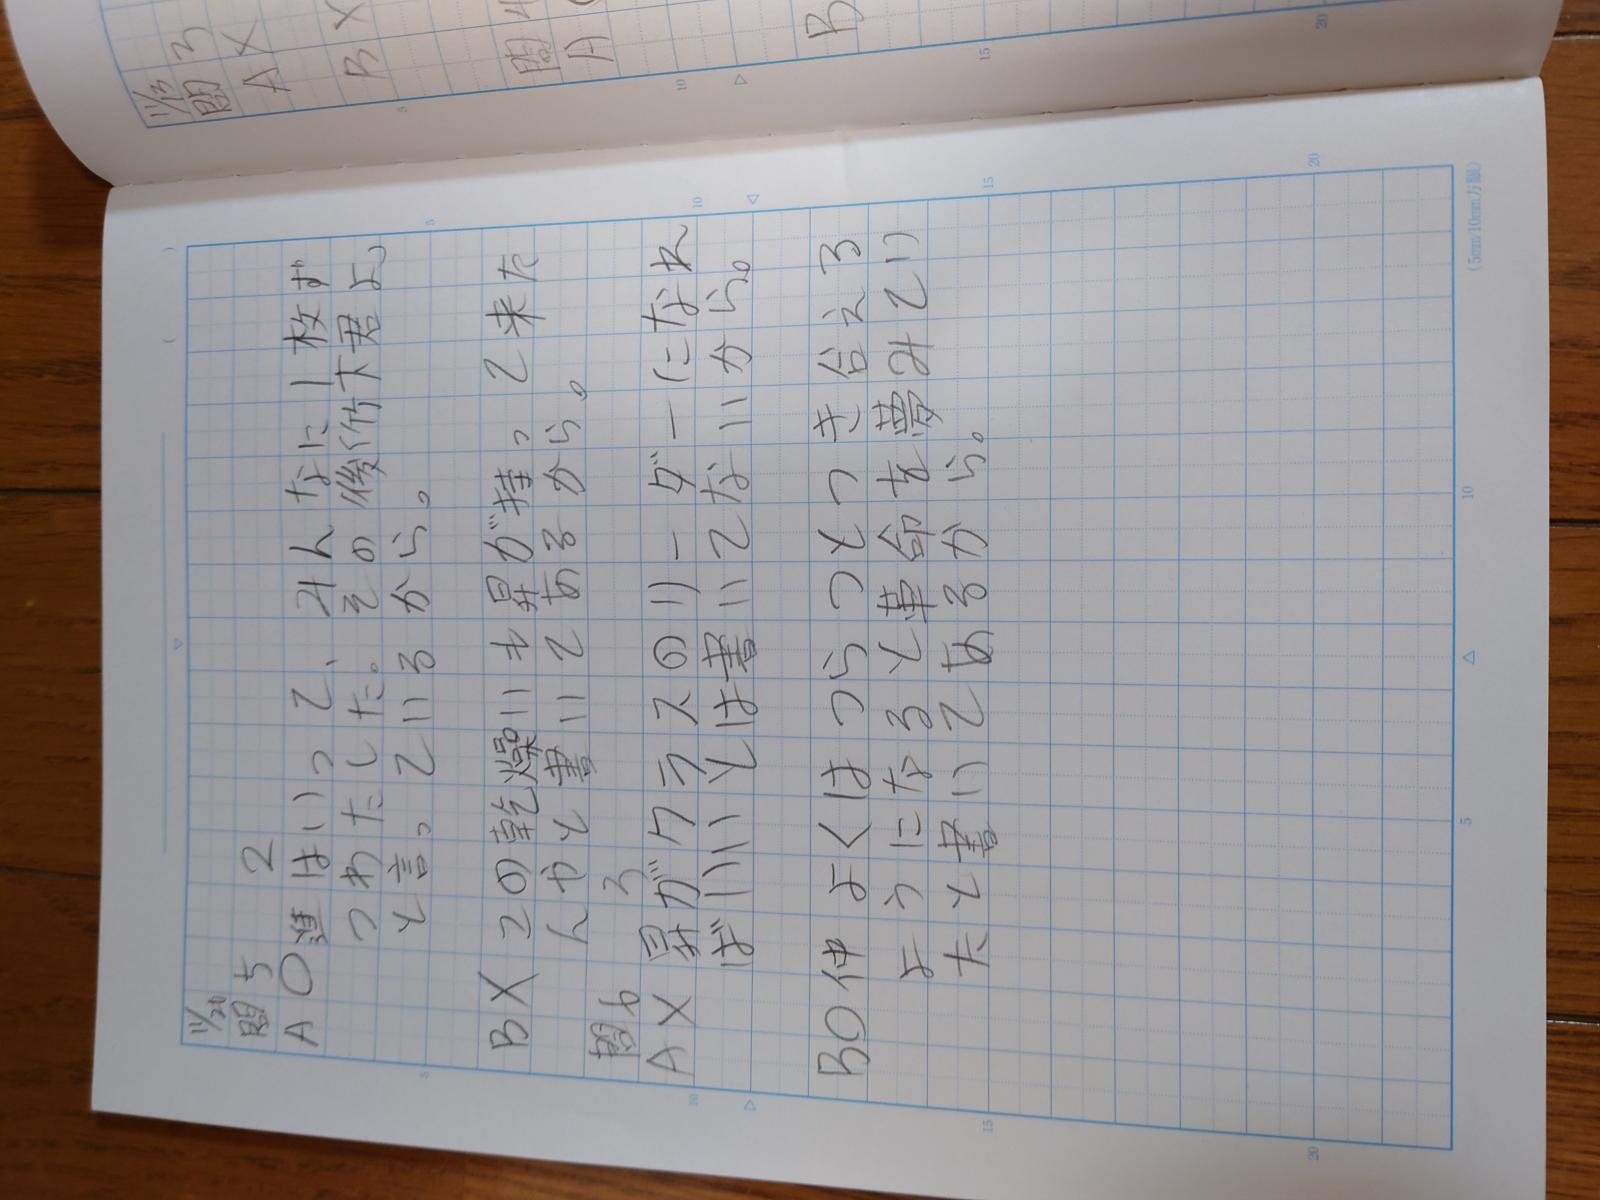 11/13
問 3
A X
B X
問 4
A
B
11/20
問 5 2
A○進はいって、みんなに1枚ず
つわたした。その後「竹下君よ」
と言っているから。
BX この乾燥いも昇が持って来た
んやと書いてあるから。
問 6 3
AX 昇がクラスのリーダーになれ
ばいいとは書いてないから。
B○仲よくはつらつとつき合える
ようになると革命を夢みてい
たと書いてあるから。
(5mm10mm方眼)
5
10
15
20
5
10
15
20
5
10
15
20